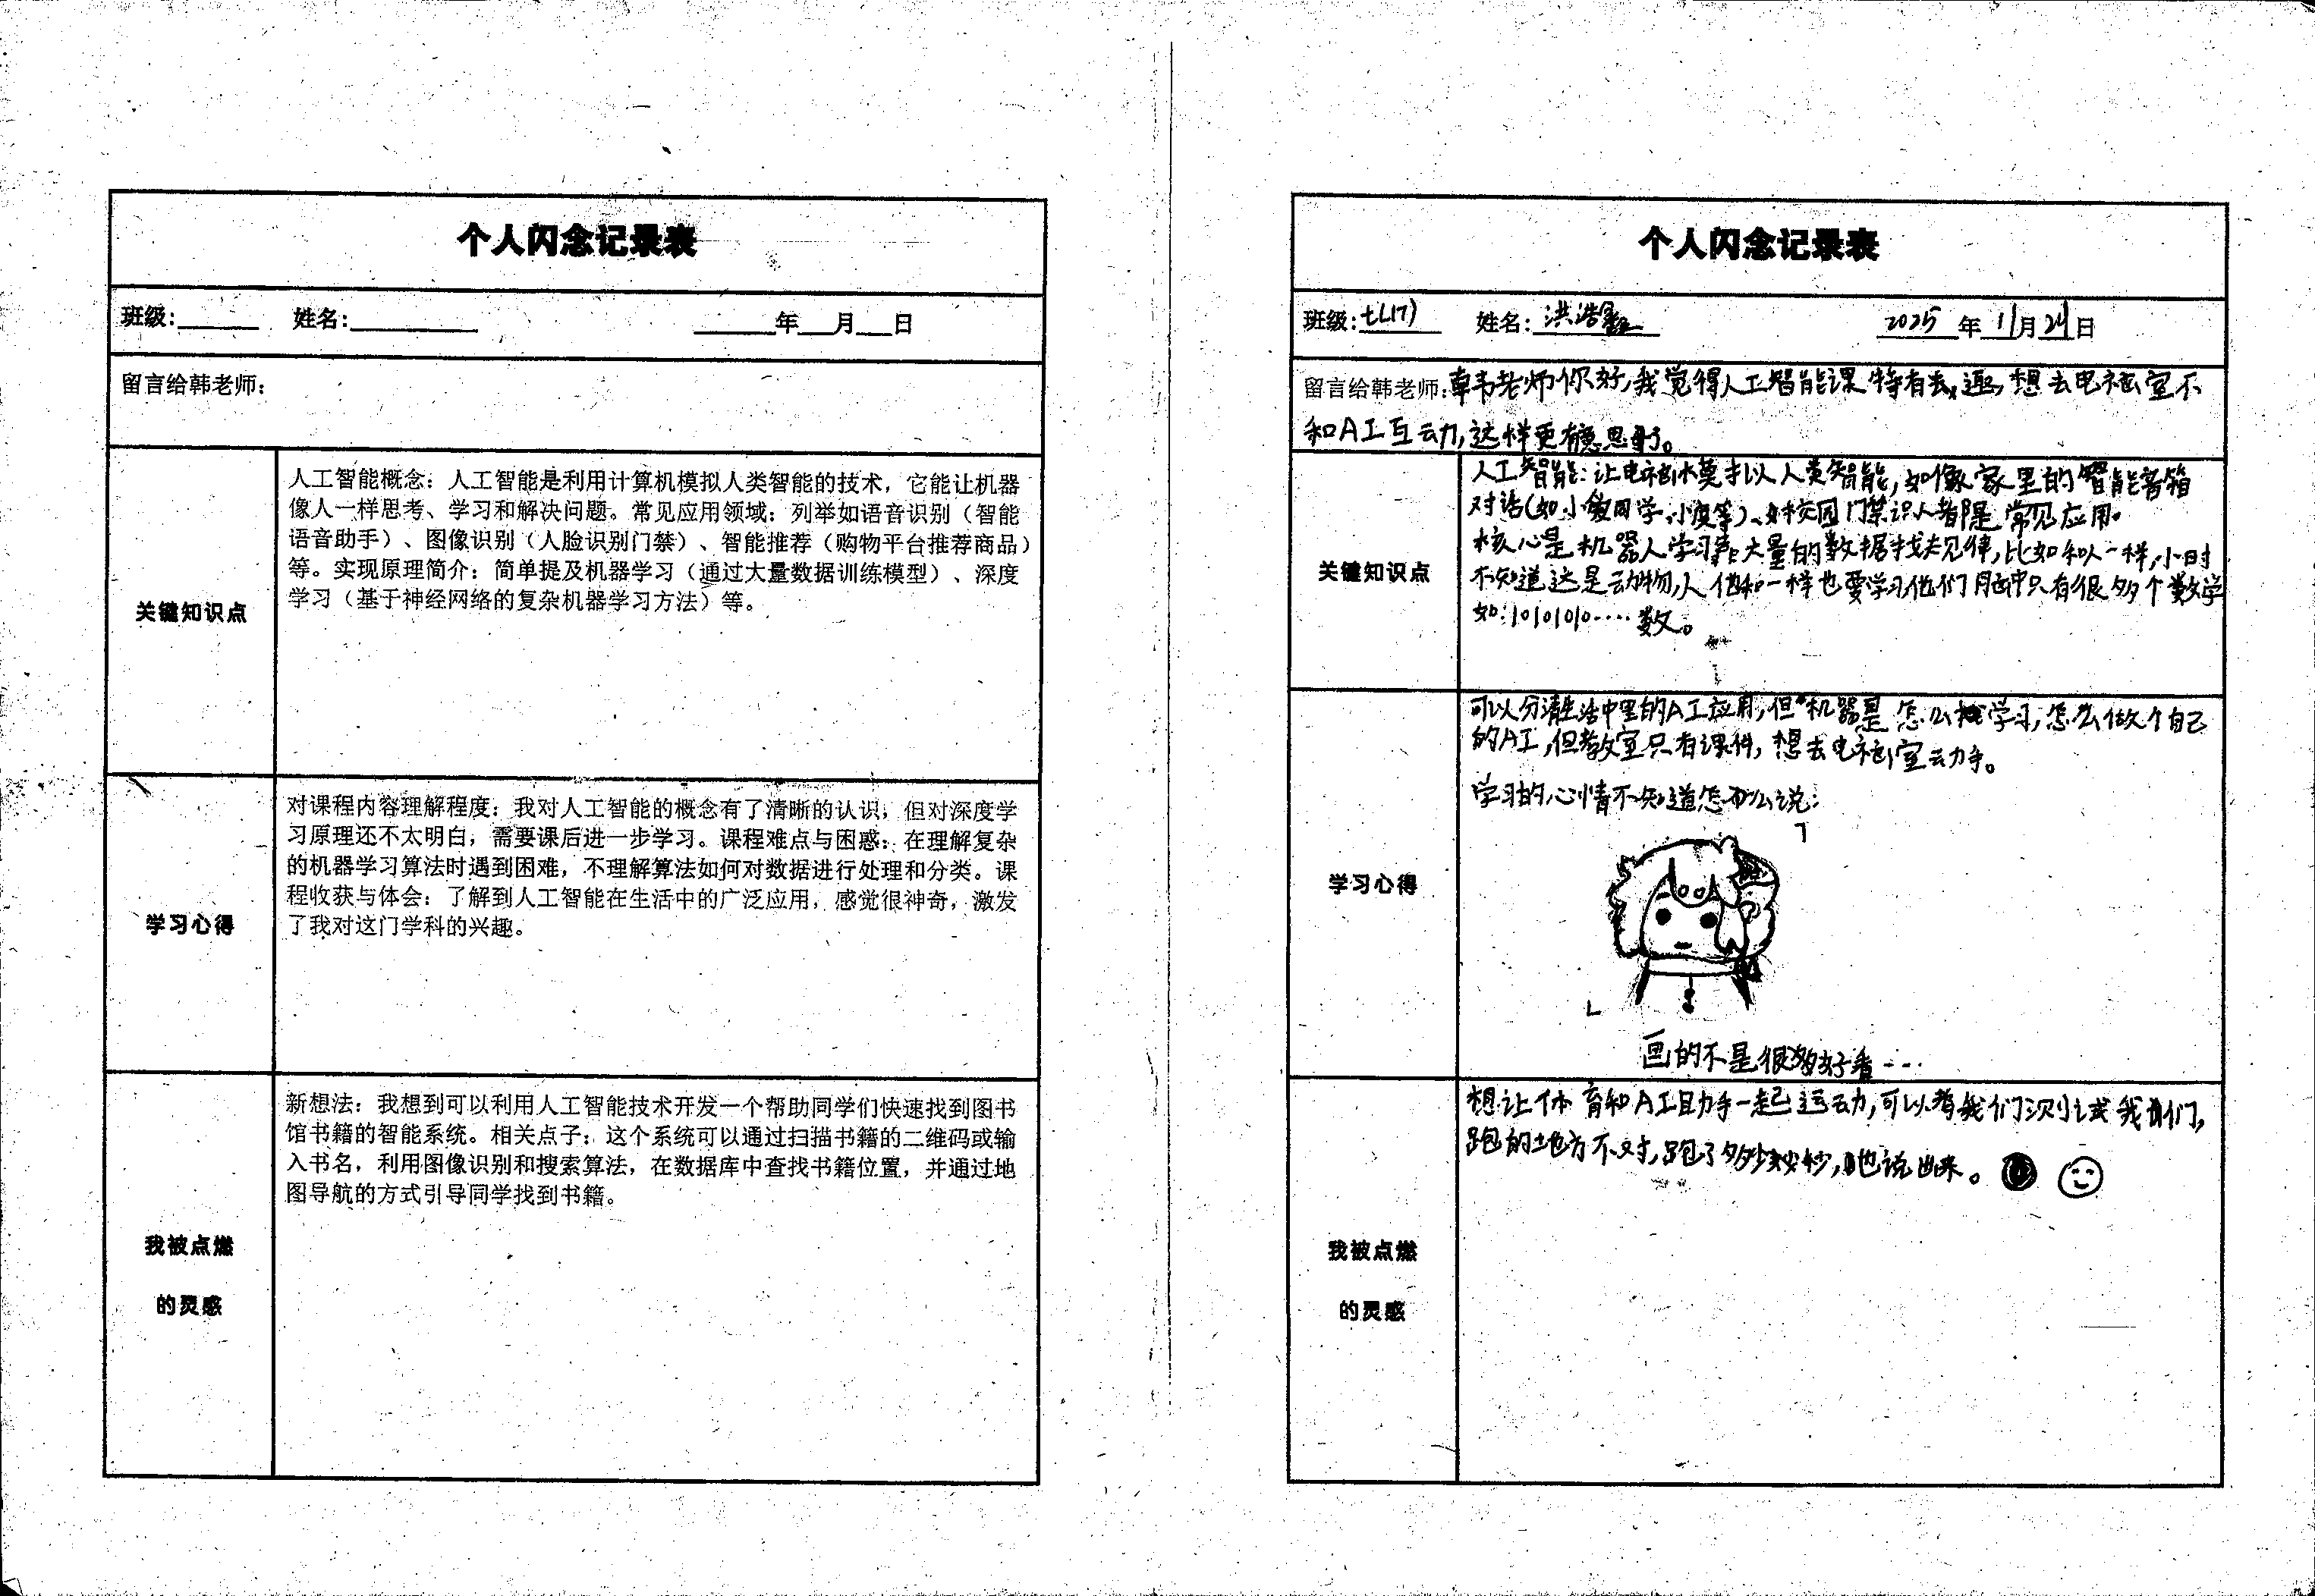 个人闪念记录表
班级:______ 姓名:______ ______年___月___日
留言给韩老师:
关键知识点
人工智能概念：人工智能是利用计算机模拟人类智能的技术，它能让机器
像人一样思考、学习和解决问题。常见应用领域：列举如语音识别（智能
语音助手）、图像识别（人脸识别门禁）、智能推荐（购物平台推荐商品）
等。实现原理简介：简单提及机器学习（通过大量数据训练模型）、深度
学习（基于神经网络的复杂机器学习方法）等。
学习心得
对课程内容理解程度：我对人工智能的概念有了清晰的认识，但对深度学
习原理还不太明白，需要课后进一步学习。课程难点与困惑：在理解复杂
的机器学习算法时遇到困难，不理解算法如何对数据进行处理和分类。课
程收获与体会：了解到人工智能在生活中的广泛应用，感觉很神奇，激发
了我对这门学科的兴趣。
我被点燃
的灵感
新想法：我想到可以利用人工智能技术开发一个帮助同学们快速找到图书
馆书籍的智能系统。相关点子：这个系统可以通过扫描书籍的二维码或输
入书名，利用图像识别和搜索算法，在数据库中查找书籍位置，并通过地
图导航的方式引导同学找到书籍。
个人闪念记录表
班级:七(17) 姓名:洪浩 2025年11月24日
留言给韩老师:韩老师你好,我觉得人工智能课特有趣,想去电脑室
和AI互动,这样更有意思了。
关键知识点
人工智能:让电脑模拟人类智能,如像家里的智能音箱
对话(如小爱同学、小度等)、校园门禁识人都是常见应用。
核心是机器人学习大量的数据找规律,比如和人一样,小时
不知道这是动物,人他和一样也要学习他们脑中只有很多个数学
如:10101010····数。
学习心得
可以分清生活中里的AI应用,但机器是怎么学习,怎么做个自己
的AI,但教室只有课件,想去电脑室动手。
学习的心情不知道怎么说:
画的不是很好看···
我被点燃
的灵感
想让体育和AI助手一起运动,可以看我们测试我们,
跑的地方不对,跑了多少秒,也说出来。